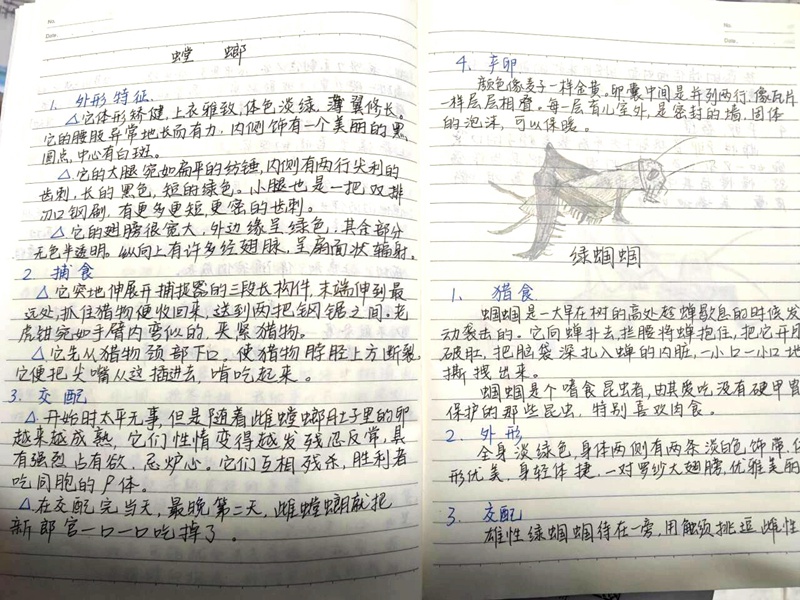 No.
Date.
螳 螂
1. 外形特征.
△它体形矫健,上衣雅致,体色淡绿.薄翼修长。
它的腰肢异常地长而有力,内侧饰有一个美丽的黑
圆点,中心有白斑。
△.它的大腿宛如扁平的纺锤,内侧有两行尖利的
齿刺,长的黑色,短的绿色。小腿也是一把双排
刃口钢刷,有更多更短,更密的齿刺。
△它的翅膀很宽大,外边缘呈绿色,其余部分
无色半透明。纵向上有许多经翅脉,呈扇面状辐射.
2 捕食
△它突地伸展开捕捉器的三段长构件,末端伸到最
远处,抓住猎物便收回来,送到两把钢锯之间.老
虎钳宛如手臂内弯似的,夹紧猎物。
△它先从猎物颈部下口,使猎物脖胫上方断裂,
它便把尖嘴从这插进去,啃吃起来。
3. 交配
△开始时太平无事,但是随着雌螳螂肚子里的卵
越来越成熟,它们性情变得越发残忍反常,具
有强烈占有欲、忌妒心。它们互相残杀,胜利者
吃同胞的尸体。
△在交配完当天,最晚第二天,雌螳螂就把
新郎官一口一口吃掉了。
No.
Date.
4. 产卵
颜色像麦子一样金黄。卵囊中间是并列两行,像瓦片
一样层层相叠。每一层有儿室外,是密封的墙,固体
的泡沫,可以保暖。
绿蝈蝈
1. 猎食
蝈蝈是一大早在树的高处趁蝉歇息的时候发
动袭击的。它向蝉扑去,拦腰将蝉抱住,把它开膛
破肚,把脑袋深扎入蝉的内脏,一小口一小口地
撕拽出来。
蝈蝈是个嗜食昆虫者,由其爱吃没有硬甲胄
保护的那些昆虫,特别喜欢肉食。
2. 外形
全身淡绿色,身体两侧有两条淡白色饰带,
形优美,身轻体捷,一对罗纱大翅膀,优雅美丽
3. 交配
雄性绿蝈蝈待在一旁,用触须挑逗雌性